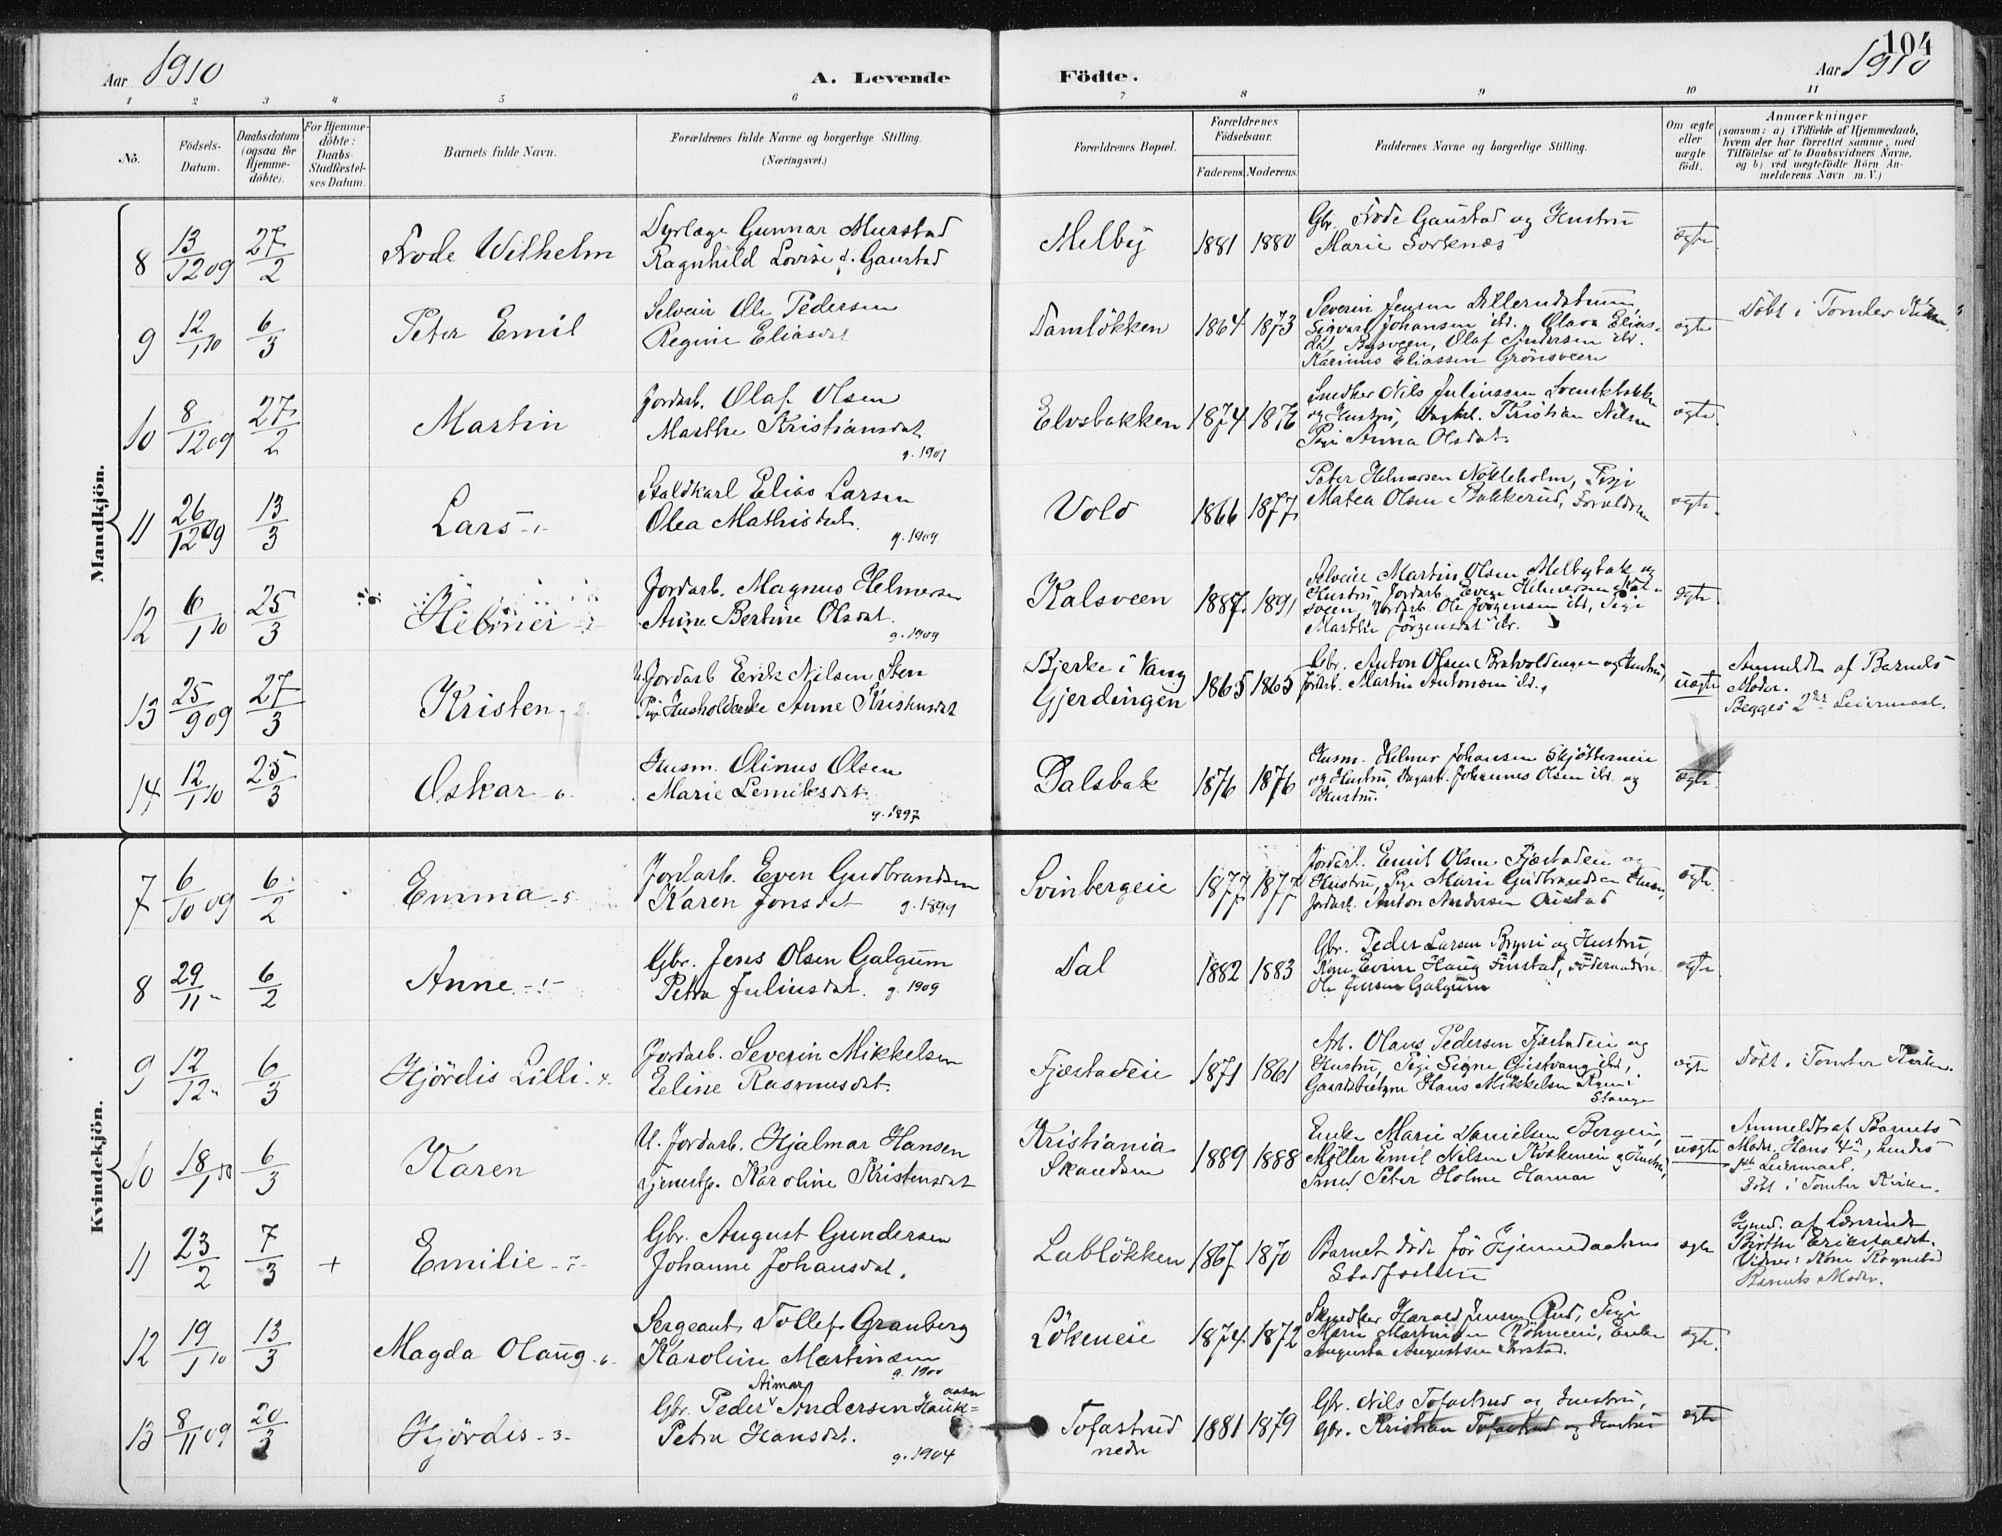 104
Aar 1910
A. Levende
Födte.
Aar 1910
1 2 3 4 5 6 7 8 9 10 11
No.
Födsels-
Datum.
Daabsdatum
(ogsaa for
Hjemme-
döbte).
For Hjemme-
döbte:
Daabs-
Stadfæstel-
ses Datum.
Barnets fulde Navn.
Forældrenes fulde Navne og borgerlige Stilling.
(Næringsvei.)
Forældrenes Bopæl.
Forældrenes
Födselsaar.
Faderens. Moderens.
Faddernes Navne og borgerlige Stilling.
Om ægte
eller
uægte
födt.
Anmærkninger
(saasom: a) i Tilfælde af Hjemmedaab,
hvem der har forrettet samme, med
Tilföielse af to Daabsvidners Navne,
og b) ved uægtefödte Börn An-
melderens Navn m. V.)
Mandkjön.
8 13/12 09 27/2 Frode Wilhelm
Dyrlæge Gunnar Murstad
Ragnhild Lovise f. Gaustad
Melby 1881 1880
Gbr. Frode Gaustad og Hustru
Marie Sorknæs
ægte
9 12/1 10 6/3 Peter Emil
Selveier Ole Pedersen
Regine Eliasdat
Damløkken 1864 1873
Severin Jensen
Sigvart Johansen ibd. Olava Elias-
dat, Bysveen, Olaf Andersen ibd.
Karinus Eliassen Grönsveen
ægte
Döbt i Tomter Kirke.
10 8/12 09 27/2 Martin
Jordarb. Olaf Olsen
Marthe Kristiansdat
g. 1901
Elvsbakken 1874 1876
Snedker Nils Juliussen
og Hustru, Kristian Nilsen
Pige Anna Olsdat.
ægte.
11 26/12 09 13/3 Lars -1-
Staldkarl Elias Larsen
Olea Mathisdat.
g. 1909
Vold 1866 1877
Peter Helmersen Nökleholm, Pige
Matea Olsen Bakkerud, Forældrene
ægte.
12 6/1 10 25/3 Helmer -2
Jordarb. Magnus Helmersen
Anne Bertine Olsdat.
g. 1909
Kalsveen 1887 1891
Selveier Martin Olsen Melbybak og
Hustru, Jordarb. Even Helmersen Kal-
sveen, Jordarb. Ole Jörgensen ibd, Pige
Marthe Jörgensdat ibd.
ægte.
13 25/9 09 27/3 Kristen - 2
U. Jordarb Erik Nilsen Sten
Pige Husholderske Anne Kristensdat
Bjerke i Vang
Gjerdingen 1865 1865
Gbr. Anton Olsen og Hustru,
Jordarb. Martin Antonsen ibd.
uægte
Anmeldt af Barnets
Moder.
Begges 2det Leiermaal.
14 12/1 10 25/3 Oskar - 6-
Husm. Olinus Olsen
Marie Lemiksdat.
g. 1897
Dalsbak 1876 1876
Husm. Helmer Johansen
og Hustru, Dagarb. Johannes Olsen ibd. og
Hustru.
ægte.
Kvindekjön.
7 6/10 09 6/2 Emma -5-
Jordarb. Even Gudbrandsen
Karen Jonsdat g. 1899
Svinbergeie 1877 1877
Jordarb. Emil Olsen Fjæstadeie og
Hustru, Pige Marie Gudbrandsen
Jordarb. Anton Andersen
ægte.
8 29/11 " 6/2 Anne -1-
Gbr. Jens Olsen Galgum
Petra Juliusdat. g. 1909
Dal 1882 1883
Gbr. Peder Larsen Bryni og Hustru,
Kone Haug Finstad,
Ole Jensen Galgum
ægte
9 12/12 " 6/3 Hjördis Lilli
Jordarb. Severin Mikkelsen
Eline Rasmusdat.
Fjæstadeie 1871 1861
Arb. Olaus Pedersen Fjæstadeie og
Hustru, Pige Signe Gistvang ibd,
Gaardsbestyrer Hans Mikkelsen Ryen i
Stange
ægte
Döbt i Tomter Kirke.
10 18/1 10 6/3 Karen
U. Jordarb. Hjalmar Hansen
Tjenestp. Karoline Kristensdat
Kristiania
Skandsen 1889 1888
Enke Marie Danielsen Bergeie,
Möller Emil Nilsen og Hustru,
Smed Peter Holme Hamar
uægte
Anmeldt af Barnets
Moder. Hans 4de, hendes
1ste Leiermaal.
Döbt i Tomter Kirke.
11 23/2 7/3 + Emilie -7-
Gbr. August Gundersen
Johanne Johansdat.
Lablökken 1867 1870
Barnet döde för Hjemmedaabens
Stadfæstelse
ægte
Hjmd. af Lærerinde
Birthe
Vidner: Kone Rognstad
Barnets Moder.
12 19/1 10 13/3 Magda Olaug -6-
Sergeant Tollef Granberg
Karoline Martinsen
g. 1900
Lökeneie 1874 1872
Snedker Harald Jensen Rud, Pige
Marie Martinsen, Enke
Augusta Augustsen
ægte.
13 8/11 09 20/3 Hjördis -3-
Gbr. Peder Aimar Andersen Hauk-
aasen
Petra Hansdat.
g. 1904
Tofastrud
nedre 1881 1879
Gbr. Nils Tofastrud og Hustru,
Gbr. Kristian Tofastrud og Hustru
ægte